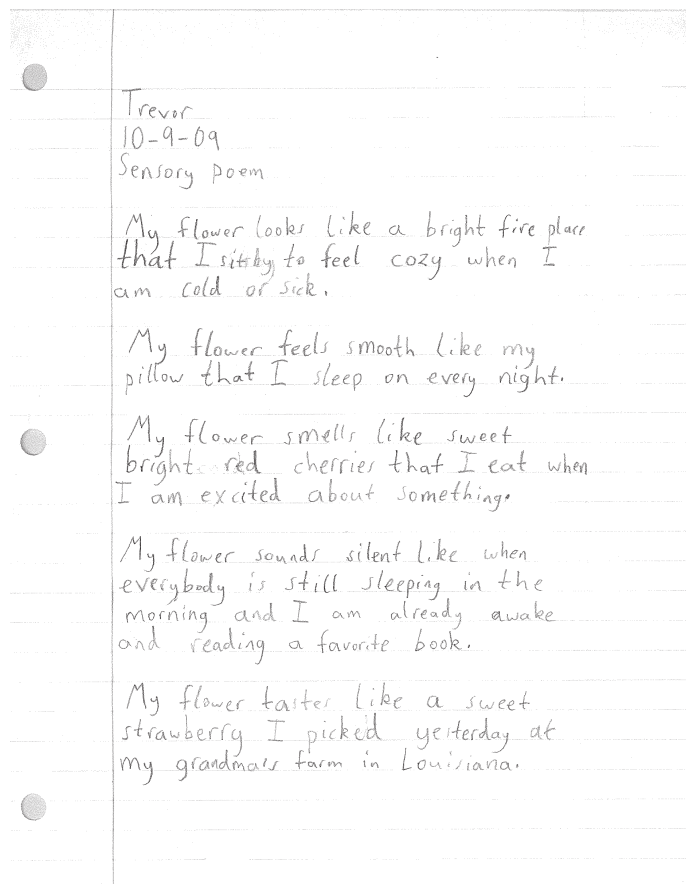 Trevor
10-9-09
Sensory poem
My flower looks like a bright fire place
that I sit by to feel cozy when I
am cold or sick.
My flower feels smooth like my
pillow that I sleep on every night.
My flower smells like sweet
bright red cherries that I eat when
I am excited about something.
My flower sounds silent like when
everybody is still sleeping in the
morning and I am already awake
and reading a favorite book.
My flower tastes like a sweet
strawberry I picked yesterday at
my grandma's farm in Louisiana.